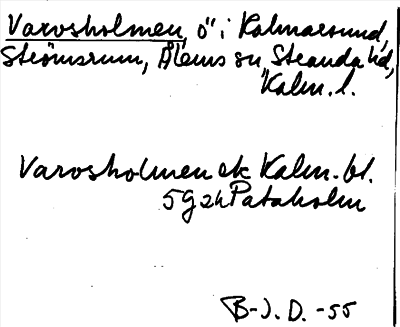 Varvsholmen, ö i Kalmarsund,
Strömsrum, Ålems sn, Stranda hd,
Kalm. l.
Varvsholmen ek Kalm. bl.
5G2h Pataholm
B-J. D. -55